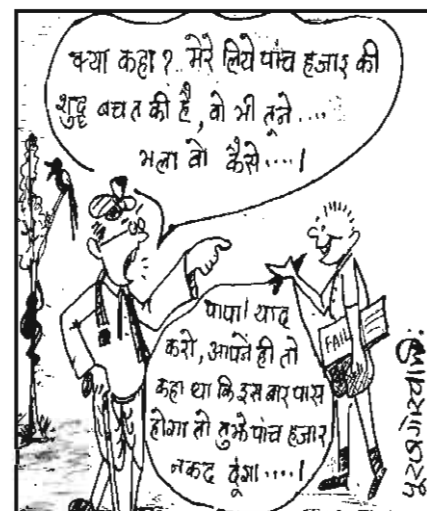 क्या कहा ? मेरे लिये पांच हजार की
शुद्ध बचत की है, वो भी तूने ....
भला वो कैसे ....।
पापा! याद
करो, आपने ही तो
कहा था कि इस बार पास
होगा तो तुझे पांच हजार
नकद दूंगा ....।
FAIL